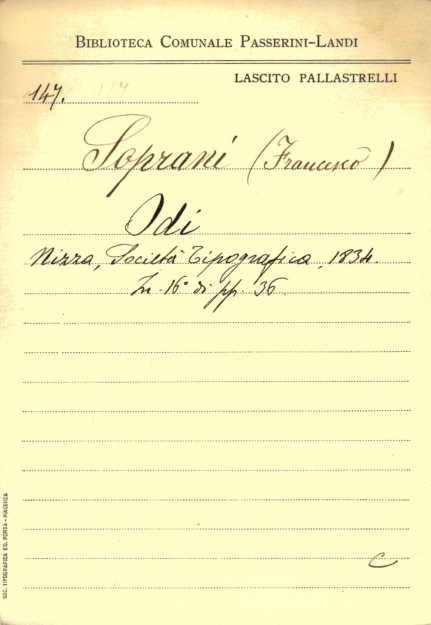 BIBLIOTECA COMUNALE PASSERINI-LANDI
LASCITO PALLASTRELLI
147.
Soprani (Francesco)
Odi
Nizza, Società Tipografica, 1834.
In-16° di pp. 36.
C
SOC. TIPOGRAFICA ED. PORTA - PIACENZA